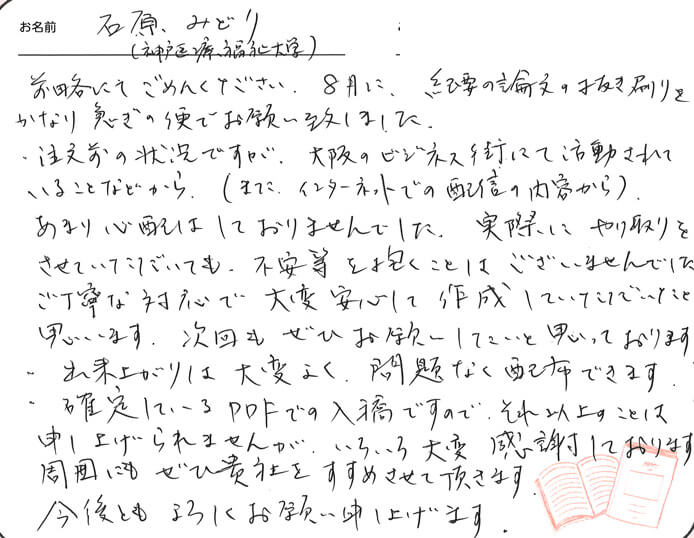 お名前 石原 みどり
(神戸医療福祉大学)
前略にてごめんください。8月に、紀要の論文の抜き刷りを
かなり急ぎの便でお願い致しました。
・注文前の状況ですが、大阪のビジネス街にて活動されて
いることなどから、(また、インターネットでの配信の内容から)、
あまり心配はしておりませんでした。実際にやり取りを
させていただいても、不安等を抱くことはございませんでした
ご丁寧な対応で大変安心して作成していただいたこと
思います。次回もぜひお願いしたいと思っております
・出来上がりは大変よく、問題なく配布できます。
・確定しているPDFでの入稿ですので、それ以上のことは
申し上げられませんが、いろいろ大変感謝しております
周囲にもぜひ貴社をすすめさせて頂きます。
今後ともよろしくお願い申し上げます。